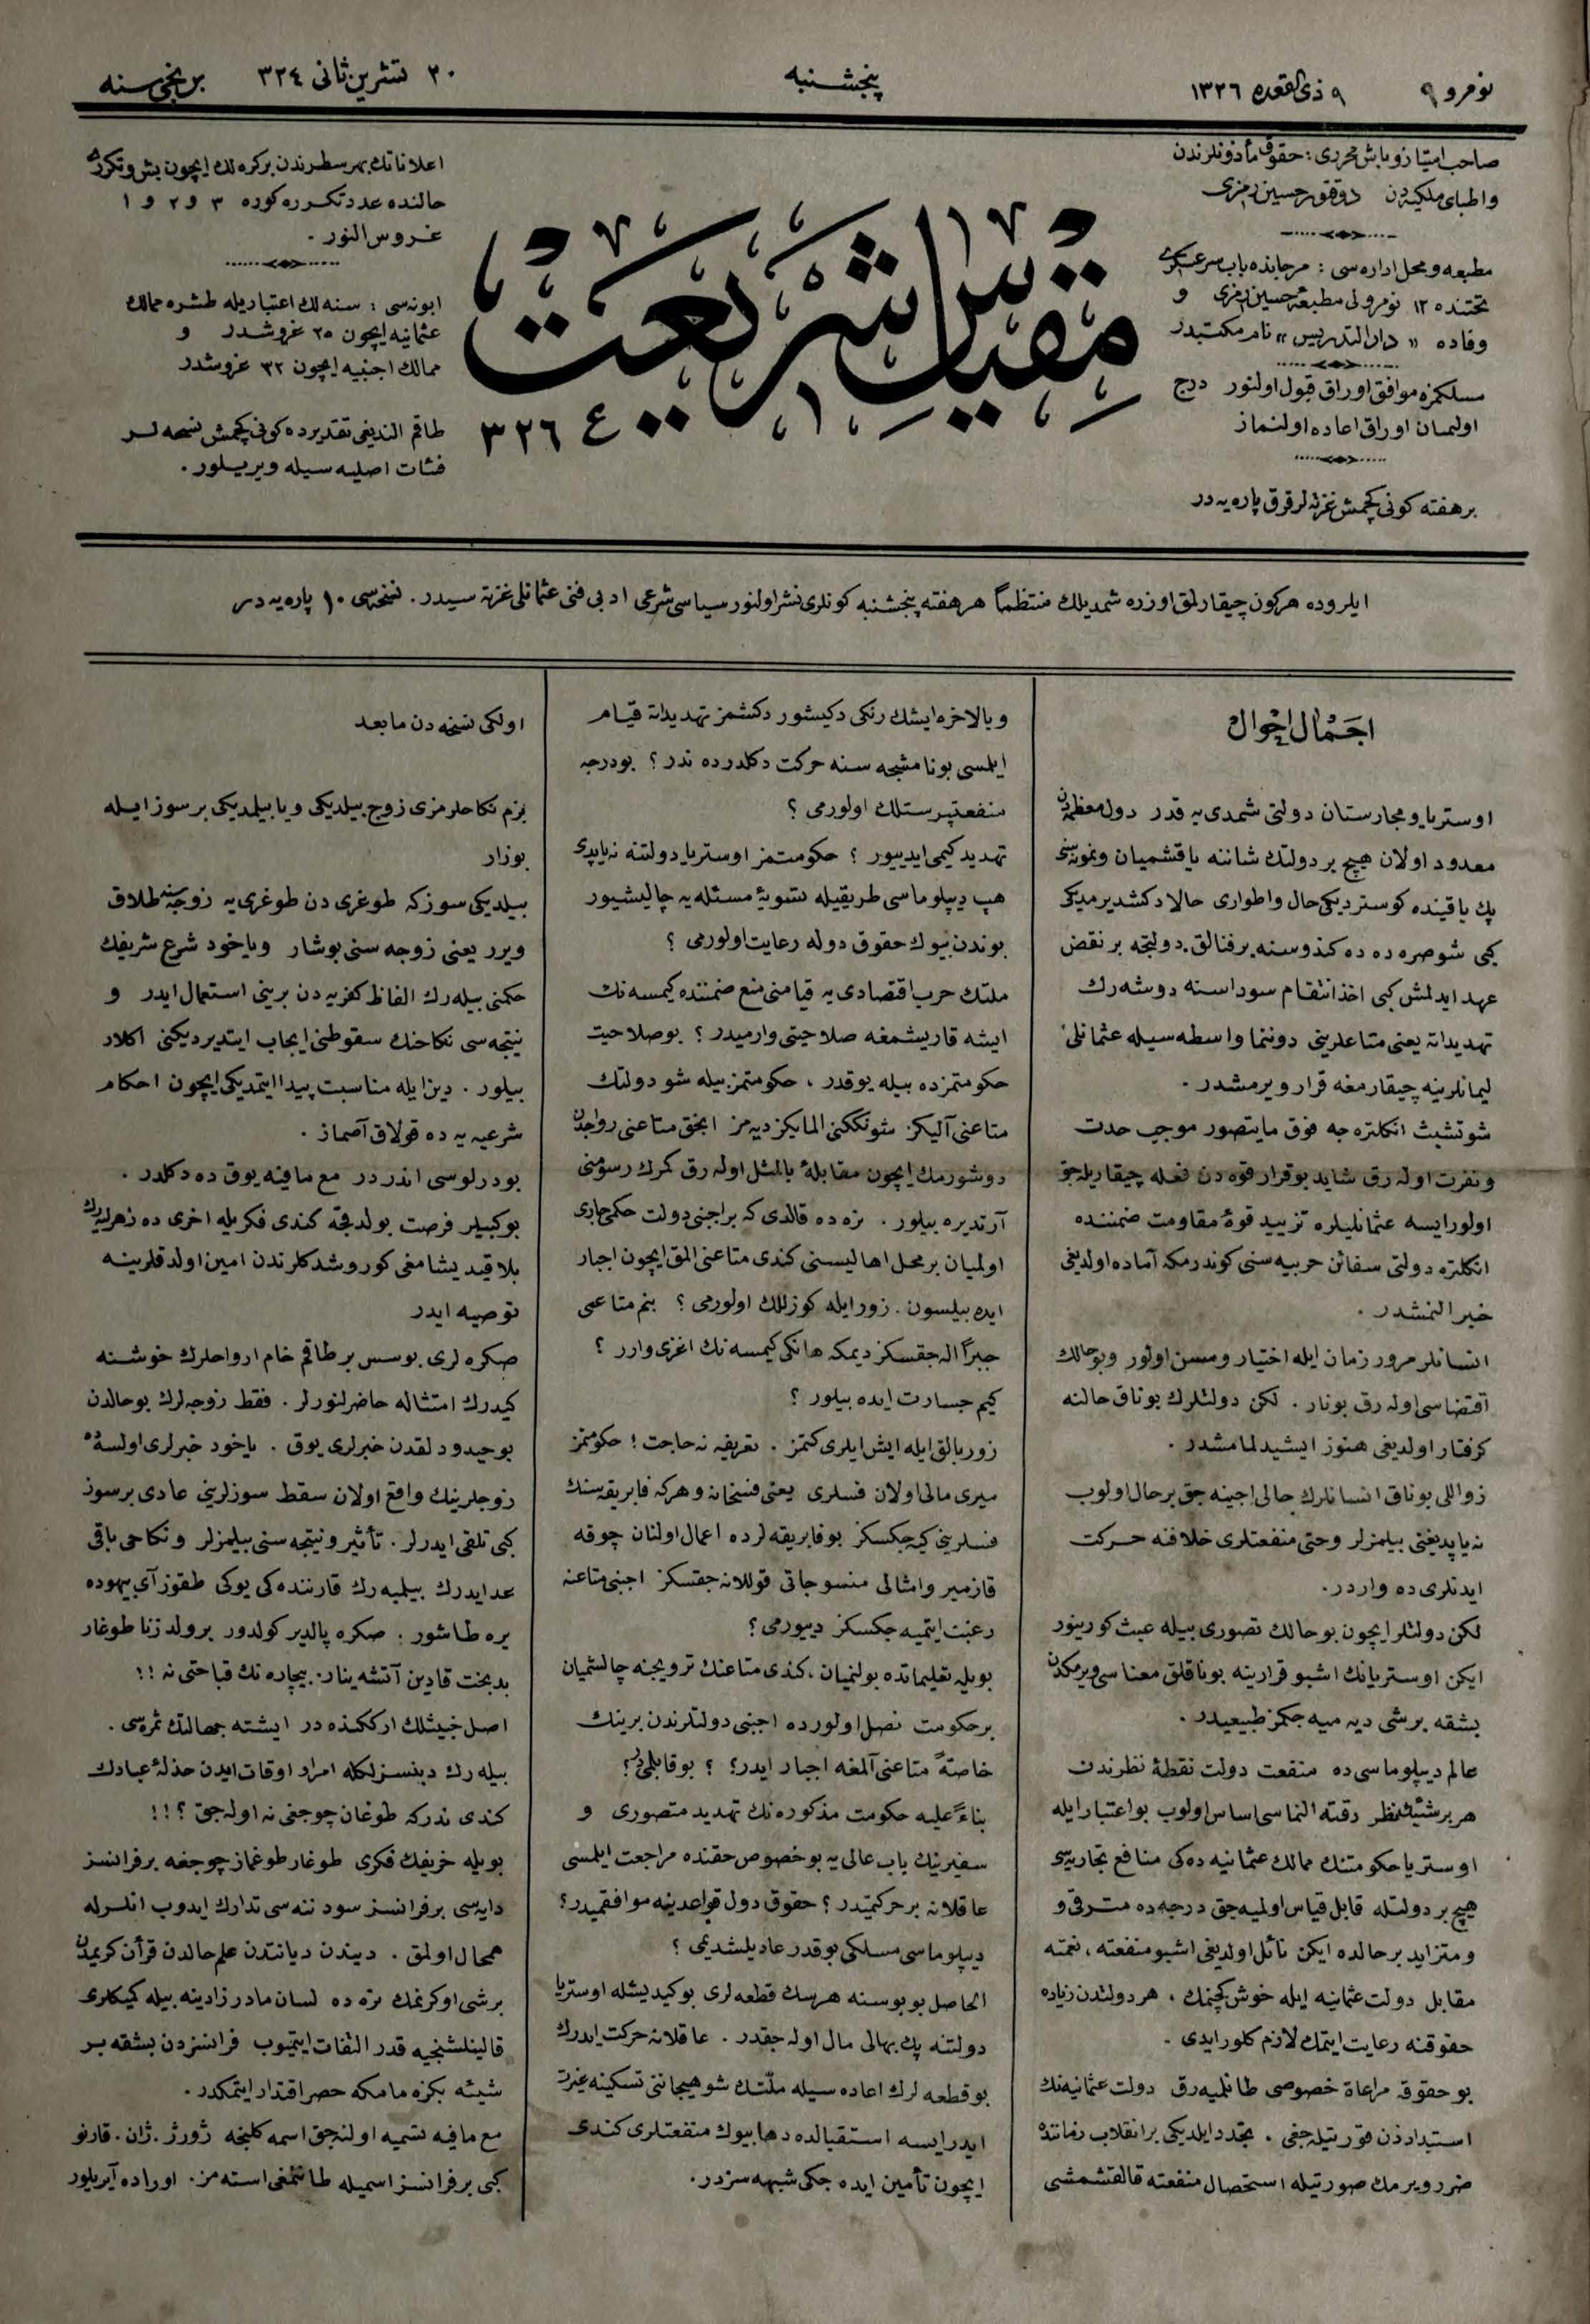 نومرو ۹
۹ ذی القعده ۱۳۲٦
پنجشنبه
۲۰ تشرین ثانی ۳۲٤
برنجی سنه
صاحب امتیاز و باش محرری : حقوق مأذونلرندن
واطبای ملکیه دن دوقتور حسین رمزی
مطبعه و محل اداره سی : مرجانده باب سرعسکری
تحتنده ۱۲ نومرولی مطبعهٔ حسین رمزی و
وفاده « دار التدریس » نام مکتبدر
مسلکمزه موافق اوراق قبول اولنور درج
اولیمان اوراق اعاده اولنماز
بر هفته کونی کچمش غزته لر قرق پاره یه در
مقیاس شریعت
ع ۳۲٦
اعلاناتك بهر سطرندن بر کره لك ایچون بش و تکرری
حالنده عدد تکرره کوره ۳ و ۲ و ۱
غروش النور .
ابونه سی : سنه لك اعتباریله طشره ممالك
عثمانیه ایچون ۲٥ غروشدر و
ممالك اجنبیه ایچون ۳۲ غروشدر
طاقم الندیغی تقدیرده کونی کچمش نسخه لر
فئات اصلیه سیله ویریلور .
ایلروده هرکون چیقارلمق اوزره شمدیلك منتظماً هر هفته پنجشنبه کونلری نشر اولنور سیاسی شرعی ادبی فنی عثمانلی غزته سیدر . نسخه سی ۱۰ پاره یه در
اجمال احوال
اوستریا و مجارستان دولتی شمدی یه قدر دول معظمه دن
معدود اولان هیچ بر دولتك شاننه یاقشمیان و نمونه سنی
پك یاقینده کوستردیکی حال واطواری حالا دکشدیرمدیکی
کبی شو صره ده ده کندوسنه بر فنالق . دولتجه بر نقض
عهد ایدلمش کبی اخذ انتقام سوداسنه دوشه رك
تهدیداته یعنی متاعلرینی دوننما واسطه سیله عثمانلی
لیمانلرینه چیقارمغه قرار ویرمشدر .
شو تشبث انکلتره جه فوق مایتصور موجب حدت
و نفرت اوله رق شاید بو قرار قوه دن فعله چیقاریله جق
اولورایسه عثمانلیلره تزیید قوهٔ مقاومت ضمننده
انکلتره دولتی سفائن حربیه سنی کوندرمکه آماده اولدیغی
خبر النمشدر .
انسانلر مرور زمان ایله اختیار و مسن اولور و بو حالك
اقتضاسی اوله رق بونار . لکن دولتلرك بوناق حالنه
کرفتار اولدیغی هنوز ایشیدلمامشدر .
زواللی بوناق انسانلرك حالی اجینه جق بر حال اولوب
نه یاپدیغنی بیلمزلر و حتی منفعتلری خلافنه حرکت
ایدنلری ده واردر.
لکن دولتلر ایچون بو حالك تصوری بیله عبث کورینور
ایکن اوستریانك اشبو قرارینه بوناقلق معناسی ویرمکدن
بشقه بر شی دیه میه جکمز طبیعیدر.
عالم دیپلوماسی ده منفعت دولت نقطهٔ نظرندن
هر بر شیئك نظر دقته النماسی اساس اولوب بو اعتبار ایله
اوستریا حکومتنك ممالك عثمانیه ده کی منافع تجاریه سی
هیچ بر دولتله قابل قیاس اولمیه جق درجه ده مترقی و
و متزاید بر حالده ایکن نائل اولدیغی اشبو منفعته ، نعمته
مقابل دولت عثمانیه ایله خوش کچنمك ، هر دولتدن زیاده
حقوقنه رعایت ایتمك لازم کلور ایدی .
بو حقوقه مراعاة خصوصی طانلمیه رق دولت عثمانیه نك
استبداردن قورتیله جغی . تجدد ایلدیکی بر انقلاب زماننده
ضرر ویرمك صورتیله استحصال منفعته قالقشمشی
و بالاخره ایشك رنکی دکیشور دکشمز تهدیداته قیام
ایلمسی بونا مشبجه سنه حرکت دکلدرده ندر ؟ بو درجه
منفعتپرستلك اولورمی ؟
تهدید کیمی ایدییور ؟ حکومتمز اوستریا دولتنه نه یاپدی
هپ دیپلوماسی طریقیله تسویهٔ مسئله یه چالیشیور
بوندن بیوك حقوق دوله رعایت اولورمی ؟
ملتك حرب اقتصادی یه قیامنی منع ضمننده کیمسه نك
ایشه قاریشمغه صلاحیتی وارمیدر ؟ بو صلاحیت
حکومتمزده بیله یوقدر ، حکومتمز بیله شو دولتك
متاعنی آلیکز شونککنی المایکز دیه مز انجق متاعنی رواجدن
دوشورمك ایچون مقابلهٔ بالمثل اوله رق کمرك رسومنی
آرتدیره بیلور . نزه ده قالدی که بر اجنبی دولت حکمی جاری
اولمیان بر محل اهالیسنی کندی متاعنی المق ایچون اجبار
ایده بیلسون . زور ایله کوزللك اولورمی ؟ بنم متاعمی
جبراً اله جقسکز دیمکه هانکی کیمسه نك اغزی وارر ؟
کیم جسارت ایده بیلور ؟
زوربالق ایله ایش ایلری کتمز . تعریفه نه حاجت ! حکومتمز
میری مالی اولان فسلری یعنی فسخانه و هرکه فابریقه سنك
فسلرینی کیه جکسکز بو فابریقه لرده اعمال اولنان چوقه
قازمیر و امثالی منسوجاتی قوللانه جقسکز اجنبی متاعنه
رغبت ایتمیه جکسکز دییورمی ؟
بویله تعلیماتده بولنمیان ، کندی متاعنك ترویجنه چالشمیان
بر حکومت نصل اولورده اجنبی دولتلرندن برینك
خاصةً متاعنی آلمغه اجبار ایدر ؟ ؟ بو قابلمیدر ؟
بناءً علیه حکومت مذکوره نك تهدید متصوری و
سفیرینك باب عالی یه بو خصوص حقنده مراجعت ایلمسی
عاقلانه بر حرکتمیدر ؟ حقوق دول قواعدینه موافقمیدر ؟
دیپلوماسی مسلکی بو قدر عادیلشدیمی ؟
الحاصل بو بوسنه هرسك قطعه لری بو کیدیشله اوستریا
دولتنه پك بهالی مال اوله جقدر . عاقلانه حرکت ایدرك
بو قطعه لرك اعاده سیله ملتك شو هیجاننی تسکینه غیرت
ایدر ایسه استقبالده دها بیوك منفعتلری کندی
ایچون تأمین ایده جکی شبهه سزدر.
اولکی نسخه دن مابعد
بزم نکاحلرمزی زوج بیلدیکی و یا بیلمدیکی بر سوز ایله
بوزار
بیلدیکی سوز که طوغری دن طوغری یه زوجه سنه طلاق
ویرر یعنی زوجه سنی بوشار ویاخود شرع شریفك
حکمنی بیله رك الفاظ کفریه دن برینی استعمال ایدر و
نتیجه سی نکاحنك سقوطنی ایجاب ایتدیردیکنی اکلار
بیلور . دین ایله مناسبت پیدا ایتمدیکی ایچون احکام
شرعیه یه ده قولاق آصماز .
بو درلوسی اندر در مع مافیه یوق ده دکلدر .
بو کبیلر فرصت بولدقجه کندی فکریله اخری ده زهرلیه رك
بلاقید یشامغی کوروشدکلرندن امین اولدقلرینه
توصیه ایدر
صکره لری بوسس بر طاقم خام ارواحلرك خوشنه
کیدرك امتثاله حاضرلنورلر . فقط زوجه لرك بو حالدن
بو حیدودلقدن خبرلری یوق . یاخود خبرلری اولسه ده
زوجلرینك واقع اولان سقط سوزلرینی عادی بر سوز
کبی تلقی ایدرلر . تأثیر و نتیجه سنی بیلمزلر و نکاحی باقی
عد ایدرك بیلمیه رك قارننده کی یوکی طقوز آی بیهوده
یره طاشور . صکره پالدیر کولدور بر ولد زنا طوغار
بدبخت قادین آتشه ینار . بیچاره نك قباحتی نه !!
اصل خبیثلك ارککده در ایشته جهالتك ثمره سی .
بیله رك دینسزلکله امرار اوقات ایدن حذلهٔ عبادك
کندی ندر که طوغان چوجغی نه اوله جق ؟!!
بویله خریفك فکری طوغار طوغماز چوجغه بر فرانسز
دایه سی بر فرانسز سود ننه سی تدارك ایدوب انلرله
همحال اولمق . دیندن دیانتدن علم حالدن قرآن کریمدن
بر شی اوکرنمك نزه ده لسان مادرزادینه بیله کیکلری
قالینلشنجیه قدر التفات ایتمیوب فرانسزدن بشقه بر
شیئه بکزه مامکه حصر اقتدار ایتمکدر.
مع مافیه تسمیه اولنه جق اسمه کلنجه ژورژ . ژان . قارنو
کبی بر فرانسز اسمیله طانتمغی استه مز. اوراده آیریلور